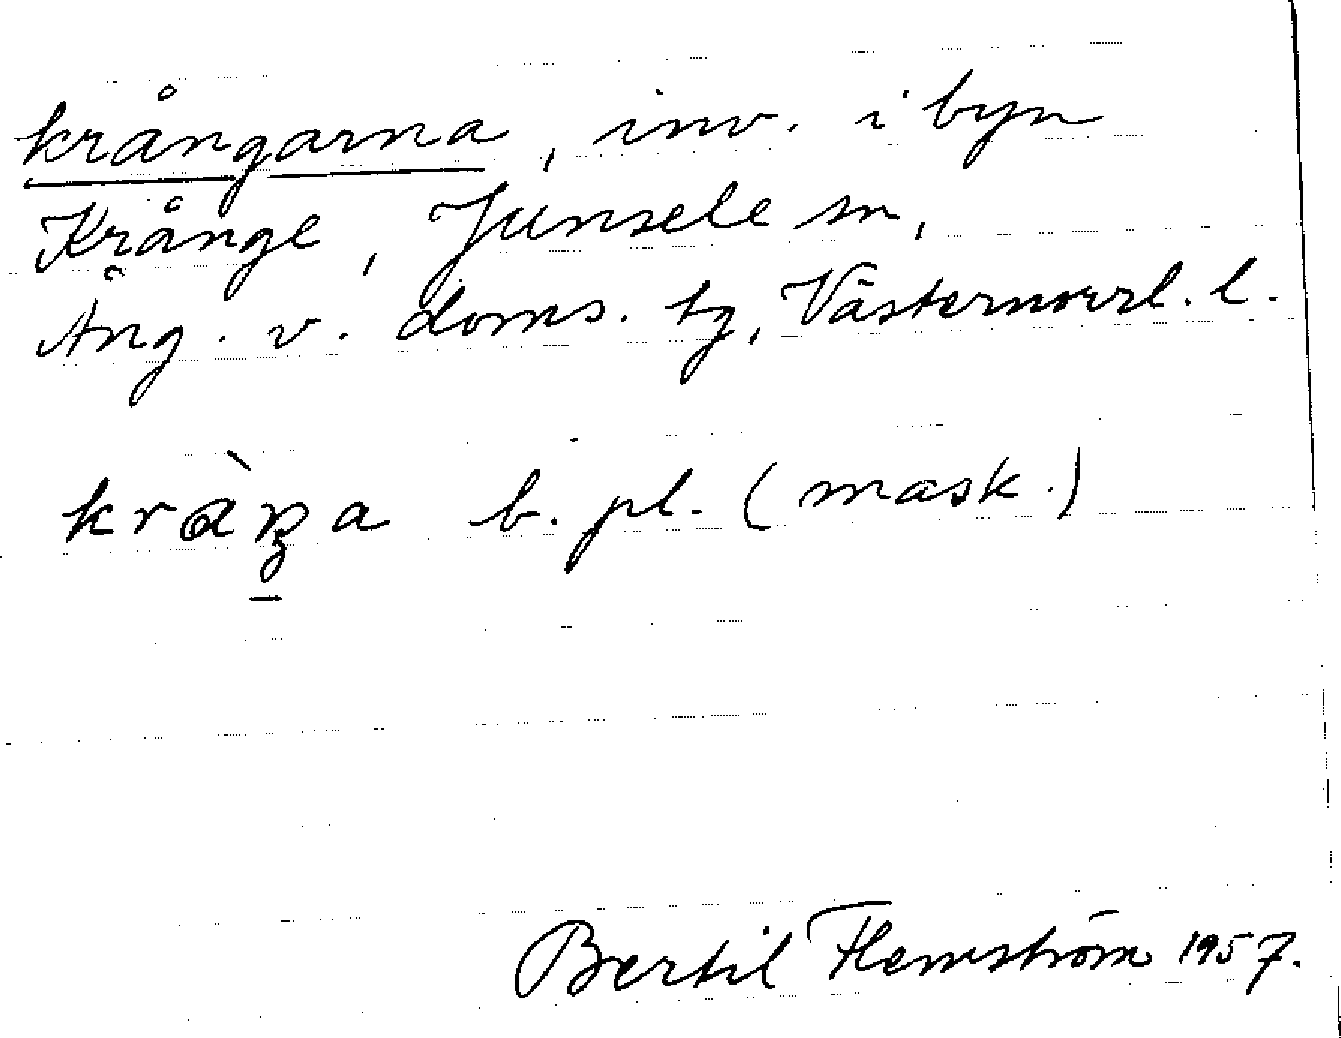 krångarna, inv. i byn
Krånge, Junsele sn,
Ång. v. doms. tg, Västernorrl. l.
b. pl. (mask.)
Bertil Flemström 1957.